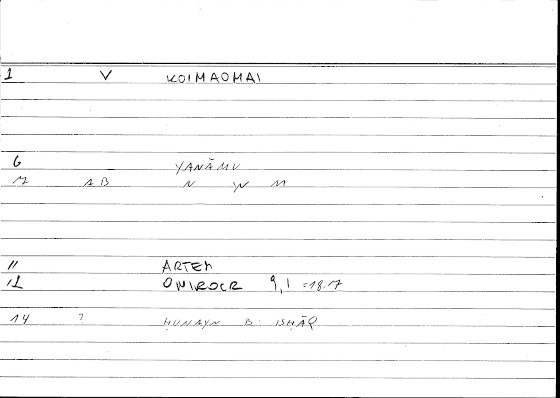 1 V KOIMAOMAI
6 YANĀMU
12 AB N W M
11 ARTEM
12 ONIROCR 9,1 =18.17
14 ? ḤUNAYN B. ISḤĀQ